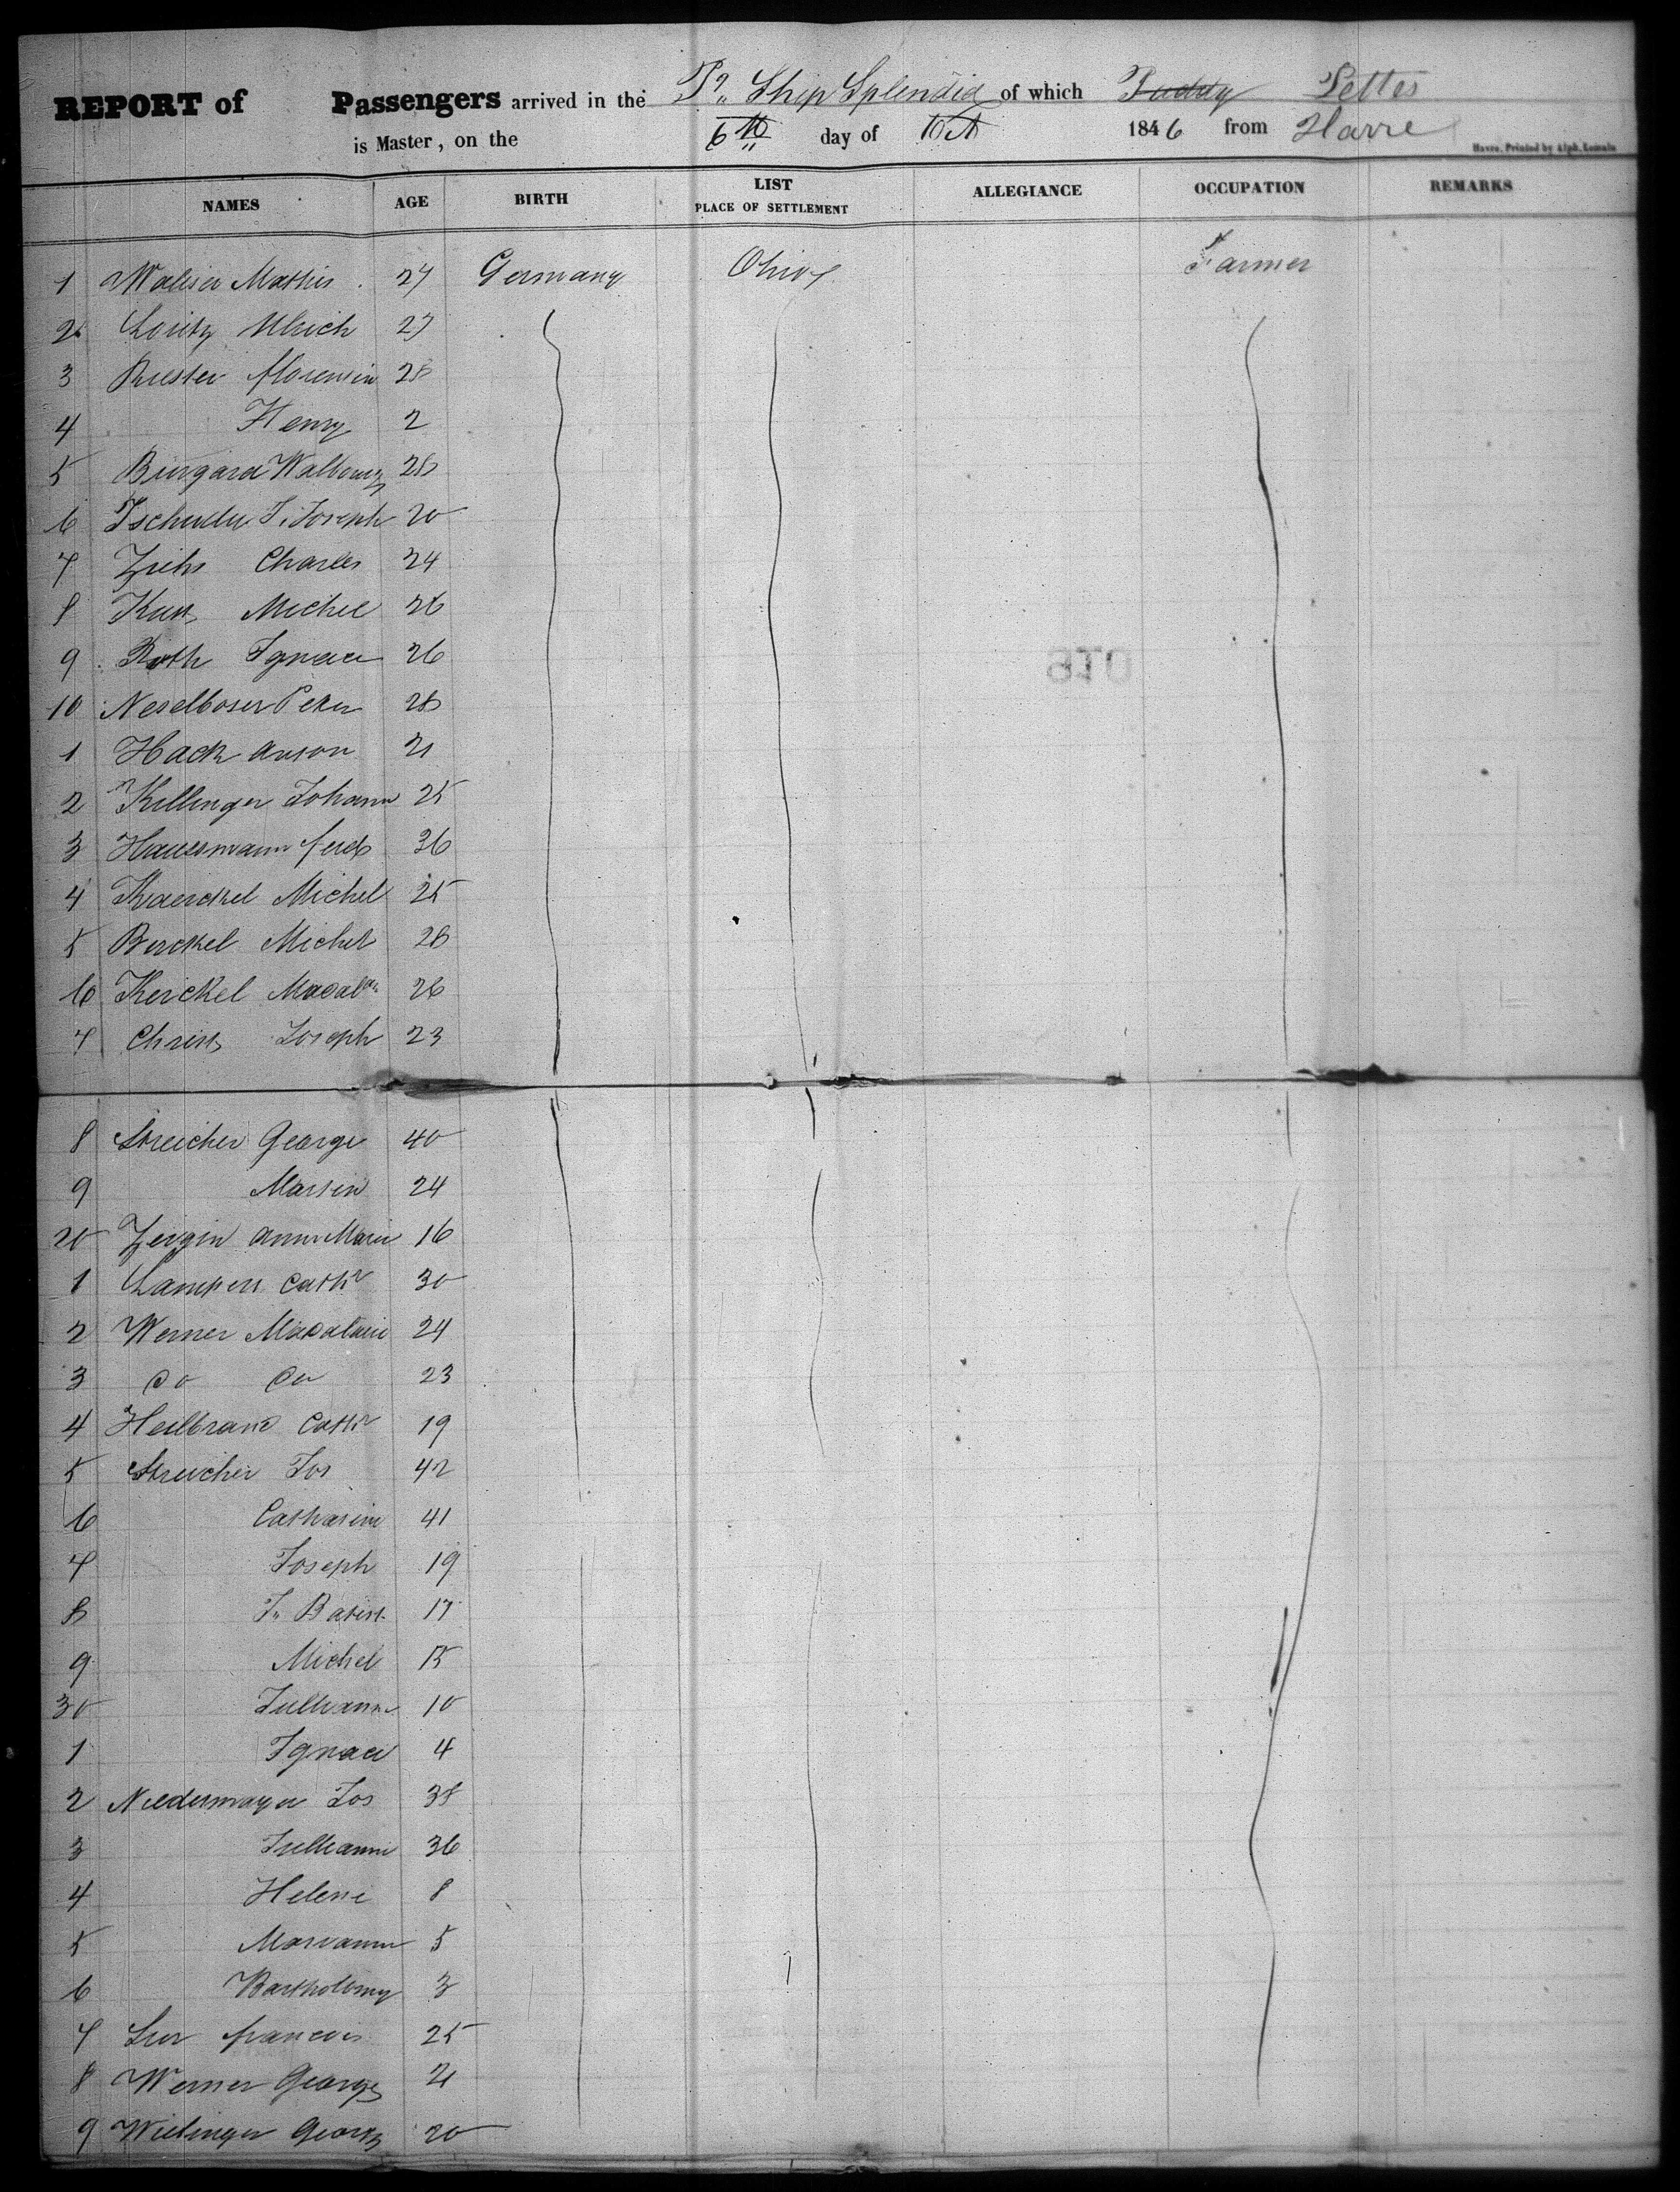 REPORT of Passengers arrived in the Ship Splendid of which Pettes
is Master, on the 6th day of 10th 1846 from Havre
Havre, Printed by Alph. Lemale
NAMES AGE BIRTH LIST PLACE OF SETTLEMENT ALLEGIANCE OCCUPATION REMARKS
1 Walser Mathis 27 Germany Ohio Farmer
2 Loritz Ulrich 27
3 Riester 28
4 Henry 2
5 Burgard Walbourg 28
6 J. Joseph 20
7 Charles 24
8 Michel 26
9 Roth Ignace 26
10 Neselboser Peter 28
1 Hack Anton 21
2 Killinger Johann 25
3 Hausmann ferd 36
4 Kaerckel Michel 25
5 Berckel Michel 28
6 Kerckel Magaln 26
7 Christ Joseph 23
8 Streicher George 40
9 Martin 24
20 Zeigin Anna Marie 16
1 Lampert Cathr 30
2 Werner Magdalaine 24
3 do do 23
4 Heilbrand Cathr 19
5 Streicher Jos 42
6 Catharine 41
7 Joseph 19
8 J. Batist 17
9 Michel 15
30 Jullianne 10
1 Ignace 4
2 Niedermayer Jos 38
3 Jullianne 36
4 Helene 8
5 Marianne 5
6 Bartholomy 3
7 francois 25
8 Werner George 21
9 George 20